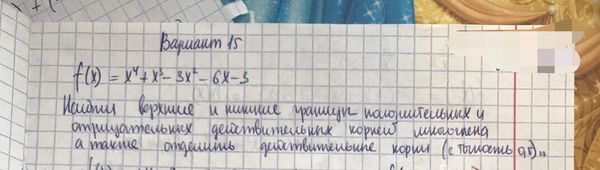 Вариант 15
f(x) = x⁴ + x³ - 3x² - 6x - 3
Найти верхние и нижние границы положительных и
отрицательных действительных корней многочлена
а также отделить действительные корни (с точность 0,5)